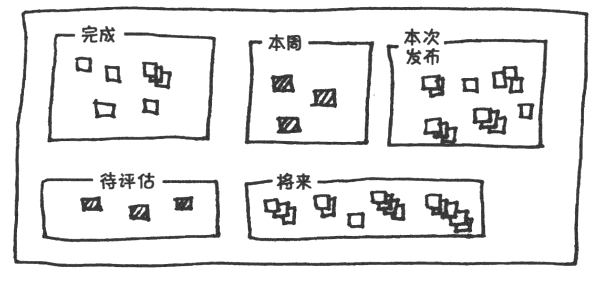 完成
本周
本次
发布
待评估
将来